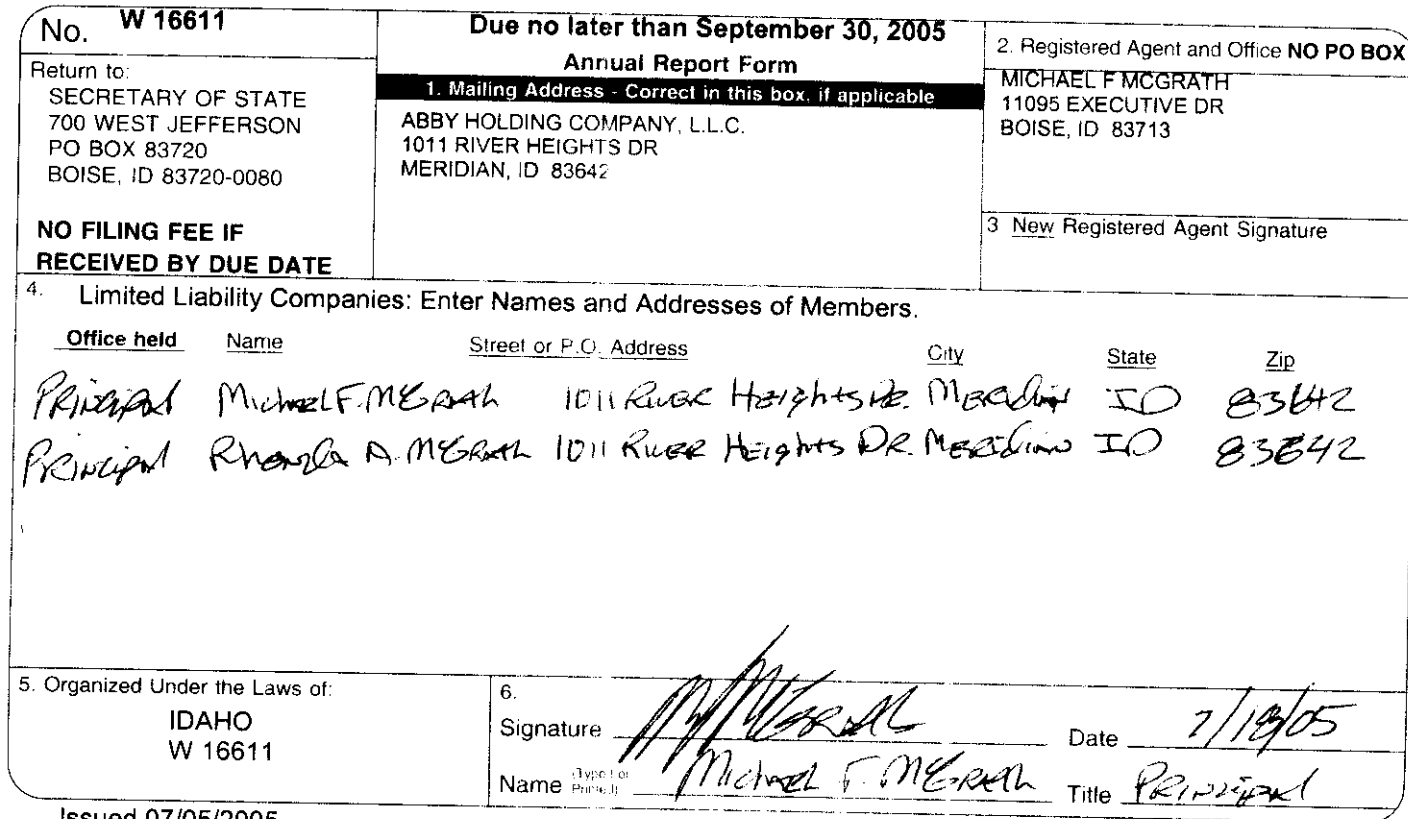 No. W 16611
Return to:
SECRETARY OF STATE
700 WEST JEFFERSON
PO BOX 83720
BOISE, ID 83720-0080
NO FILING FEE IF
RECEIVED BY DUE DATE
Due no later than September 30, 2005
Annual Report Form
1. Mailing Address - Correct in this box, if applicable
ABBY HOLDING COMPANY, L.L.C.
1011 RIVER HEIGHTS DR
MERIDIAN, ID 83642
2. Registered Agent and Office NO PO BOX
MICHAEL F MCGRATH
11095 EXECUTIVE DR
BOISE, ID 83713
3 New Registered Agent Signature
4. Limited Liability Companies: Enter Names and Addresses of Members.
Office held Name Street or P.O. Address City State Zip
Principal Michael F. McGrath 1011 River Heights Dr. Meridian ID 83642
Principal Rhonda A. McGrath 1011 River Heights Dr. Meridian ID 83642
5. Organized Under the Laws of:
IDAHO
W 16611
6.
Signature M McGrath Date 7/18/05
Name (Type or Printed) Michael F. McGrath Title Principal
Issued 07/05/2005